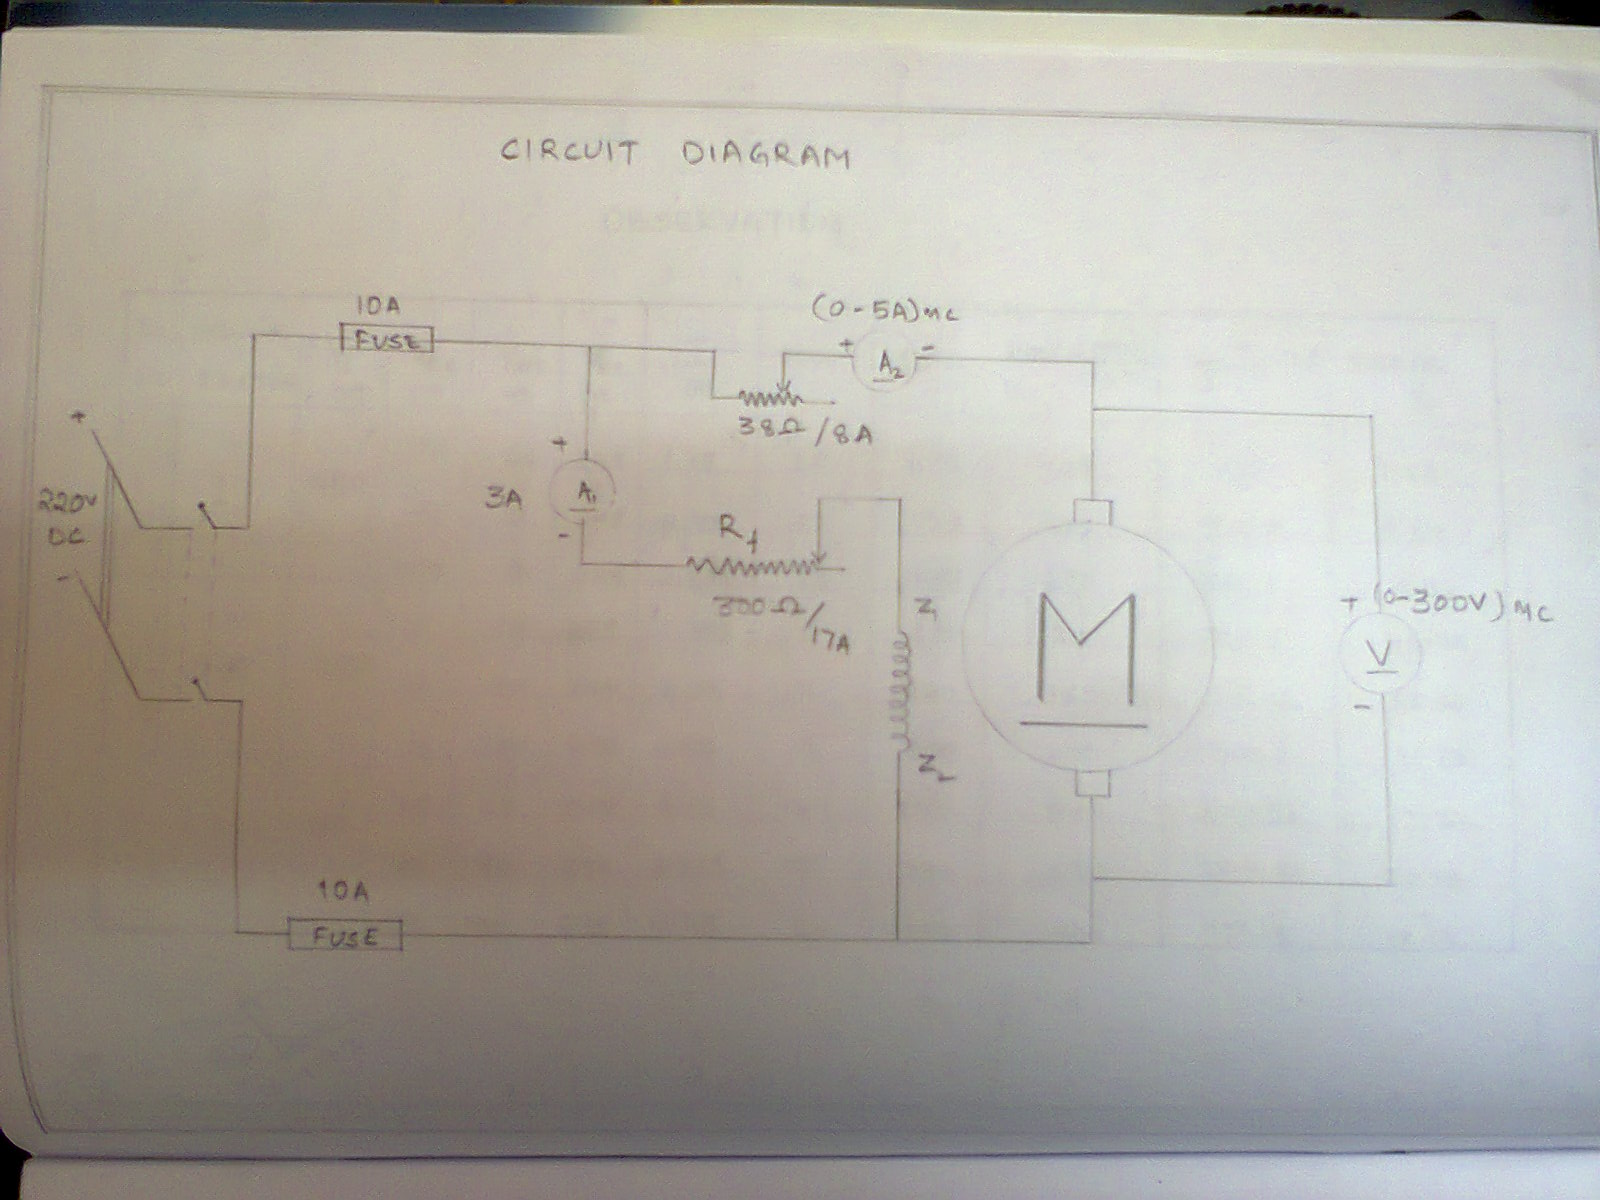 CIRCUIT DIAGRAM
OBSERVATION
10A
FUSE
(0-5A) MC
+ A2 -
38Ω/8A
+
220V
DC
-
+
3A
A1
-
Rf
300Ω/17A
Z1
Z2
M
+ (0-300V) MC
V
-
10A
FUSE